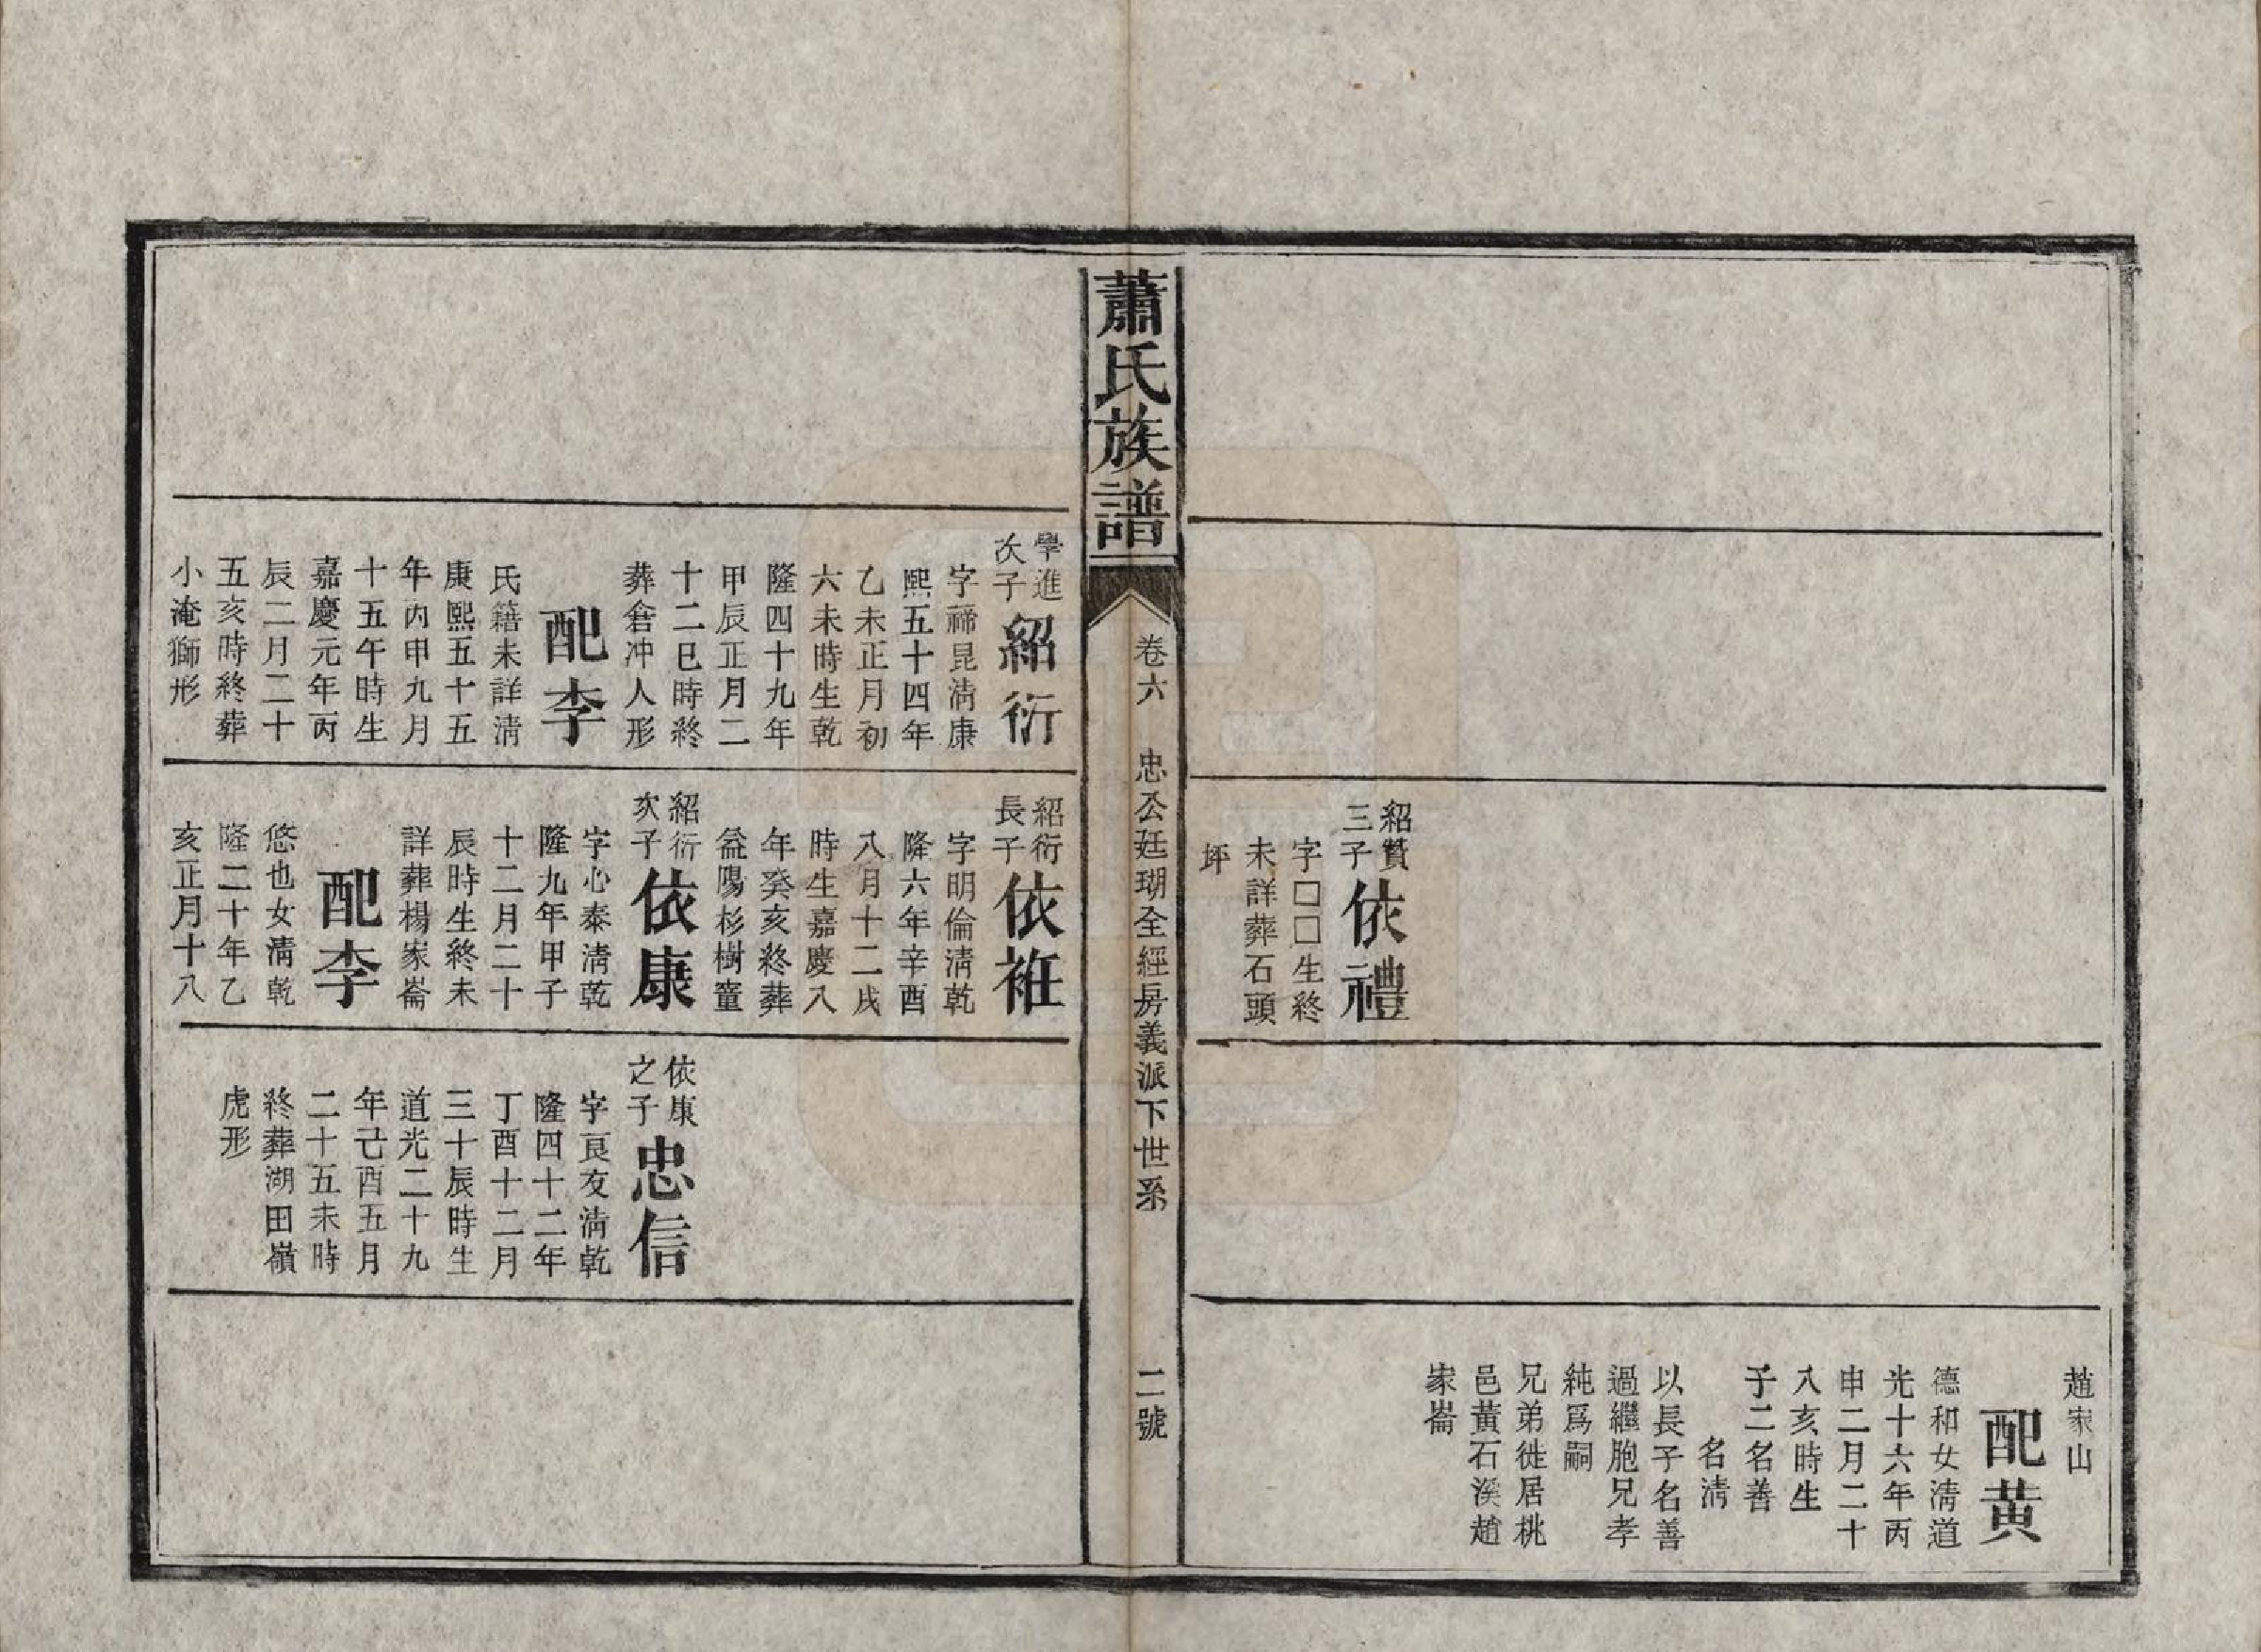 紹贊
三子
依禮
字□□生終
未詳葬石頭
坪
趙家山
配黄
德和女淸道
光十六年丙
申二月二十
八亥時生
子二名善
名淸
以長子名善
過繼胞兄孝
純爲嗣
兄弟徙居桃
邑黃石溪趙
家崙
蕭氏族譜
卷六
忠公廷瑚全經房義派下世系
二號
學進
次子
紹衍
字禘昆淸康
熙五十四年
乙未正月初
六未時生乾
隆四十九年
甲辰正月二
十二巳時終
葬倉冲人形
配李
氏籍未詳淸
康熙五十五
年丙申九月
十五午時生
嘉慶元年丙
辰二月二十
五亥時終葬
小淹獅形
紹衍
長子
依袵
字明倫淸乾
隆六年辛酉
八月十二戌
時生嘉慶八
年癸亥終葬
益陽杉樹童
紹衍
次子
依康
字心泰淸乾
隆九年甲子
十二月二十
辰時生終未
詳葬楊家崙
配李
悠也女淸乾
隆二十年乙
亥正月十八
依康
之子
忠信
字良友淸乾
隆四十二年
丁酉十二月
三十辰時生
道光二十九
年己酉五月
二十五未時
終葬湖田嶺
虎形